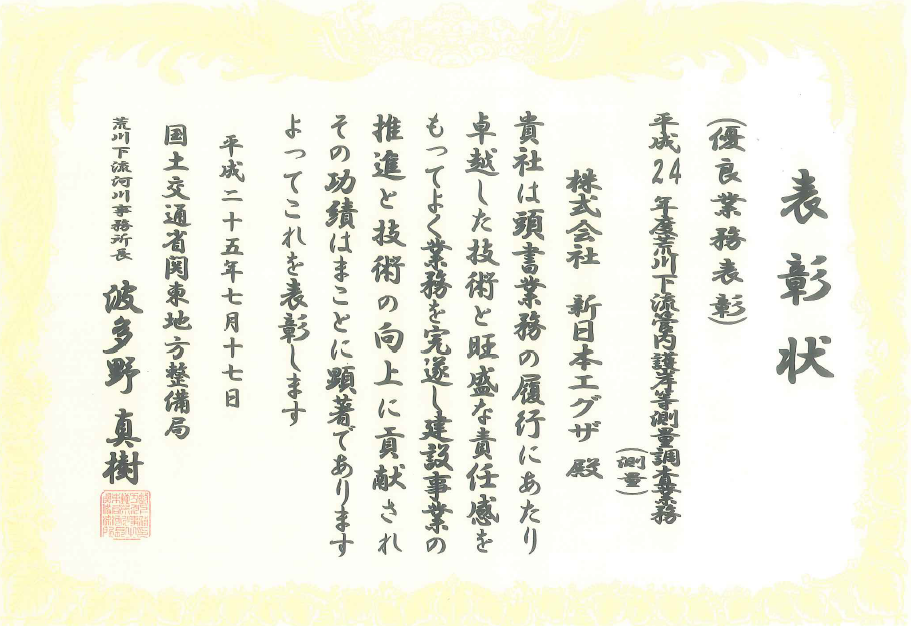 表彰状
（優良業務表彰）
平成24年度荒川下流管内護岸等測量調査業務
（測量）
株式会社 新日本エグザ 殿
貴社は頭書業務の履行にあたり
卓越した技術と旺盛な責任感を
もってよく業務を完遂し建設事業の
推進と技術の向上に貢献され
その功績はまことに顕著であります
よってこれを表彰します
平成二十五年七月十七日
国土交通省関東地方整備局
荒川下流河川事務所長 波多野 真樹